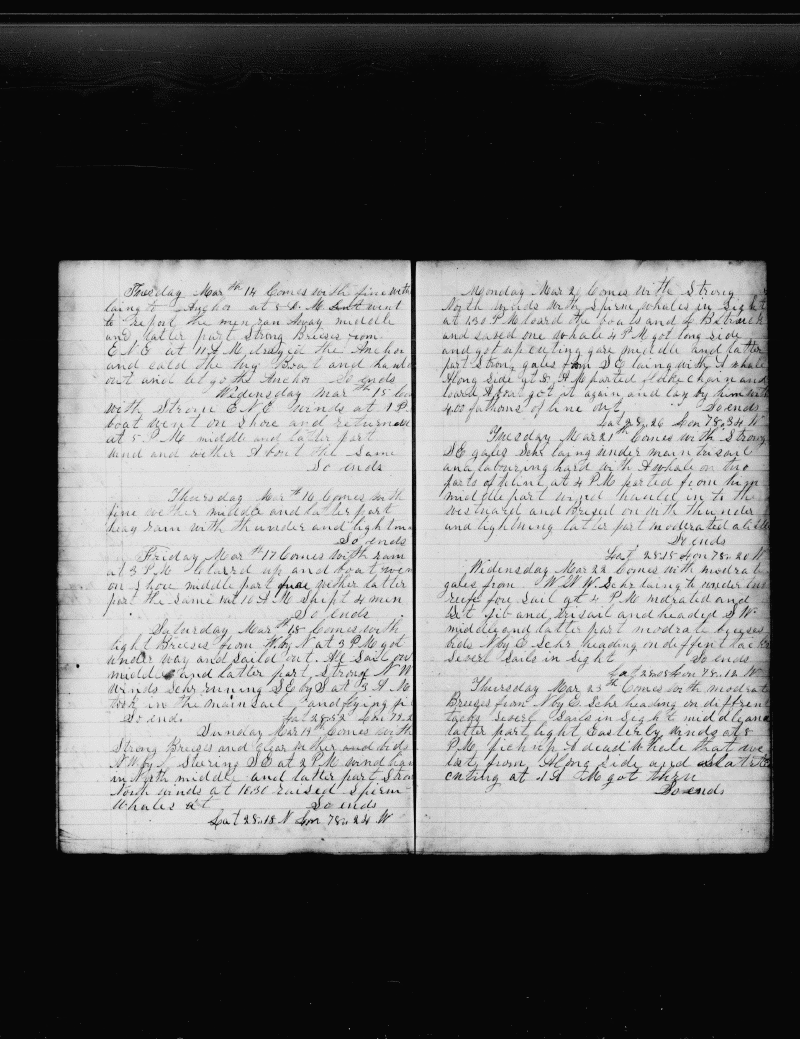 Tuesday Mar th 14 Comes with fine wither
laing to Anchor at 8 A. M boat went
to report the men ran away middle
and latter part Strong Breises from
E N E at 11 A M draged the Anchor
and cald the Boat and
out and let go the Anchor So ends
Wedensday Mar th 15 Com
with Strong E N E winds at 1 P.
boat went on Shore and returned
at 5 P M middle and latter part
wind and wither About the Same
So ends
Thursday Mar th 16 Comes with
fine wether middle and latter part
heavy rain with thunder and lightin
So ends
Friday Mar th 17 Comes with rain
at 3 P.M clared up and boat wen
on Shore middle part fine wither latter
part the Same at 10 A M Shipt 4 men
So ends
Saturday Mar th 18 Comes with
light Breises from W by N at 3 P M got
under way and Saild out. All Sail on
middle and latter part, Strong N W
winds Schr running S E by S at 3 A. M.
took in the mainsail and flying ji
So ends Lat 28..52 Lon
Sunday Mar 19th Comes with
Strong Breises and clear wither and
N W by Stering S E at 2 P M wind
in North middle and latter part Stron
North winds at 10.30 raised Spirm
Whales at So ends
Lat 28..18 N Lon 78.. 24 W
Monday Mar 2 Comes with Strong
North winds with Spirm whales in Sight
at 1.30 P M loard the boats and L. B Struck
and Saved one whale 4 P M got long side
and got up cuting gare middle and latter
part Strong gales from S E laing with A whale
Along side at A M parted fluke chain and
loard A boat got at again and lay by him with
400 fathoms of line out So ends
Lat 28..26 Lon 78..34 W
Tuesday Mar 21th Comes with Strong
S E gales Schr laing under main trisail
and labouring hard with A whale on two
parts of line at 4 P M parted from him
middle part wind hauled in to the
westward and Breised on with thunder
and lightning latter part moderated
So ends
Lat 28..15 Lon 78..20 W
Widensday Mar 22 Comes with modrate
gales from W S W Schr laing to under
reefe fore Sail at 4 P M modrated and
Set jib and trisail and headed S W.
middle and latter part modrate breises
N by E Schr heading on diffent
Severl Sails in Sight So ends
Lat 28..08 Lon 78..12 W
Thursday Mar 23th Comes with modrat
Breises from N by E. Schr heading on diffren
tacks Severl Sails in Sight middle and
latter part light Easterly winds at 8
P M. pick up A dead Whale that we
lost from Along side and Start
cuting at 1 A M got thru
So ends